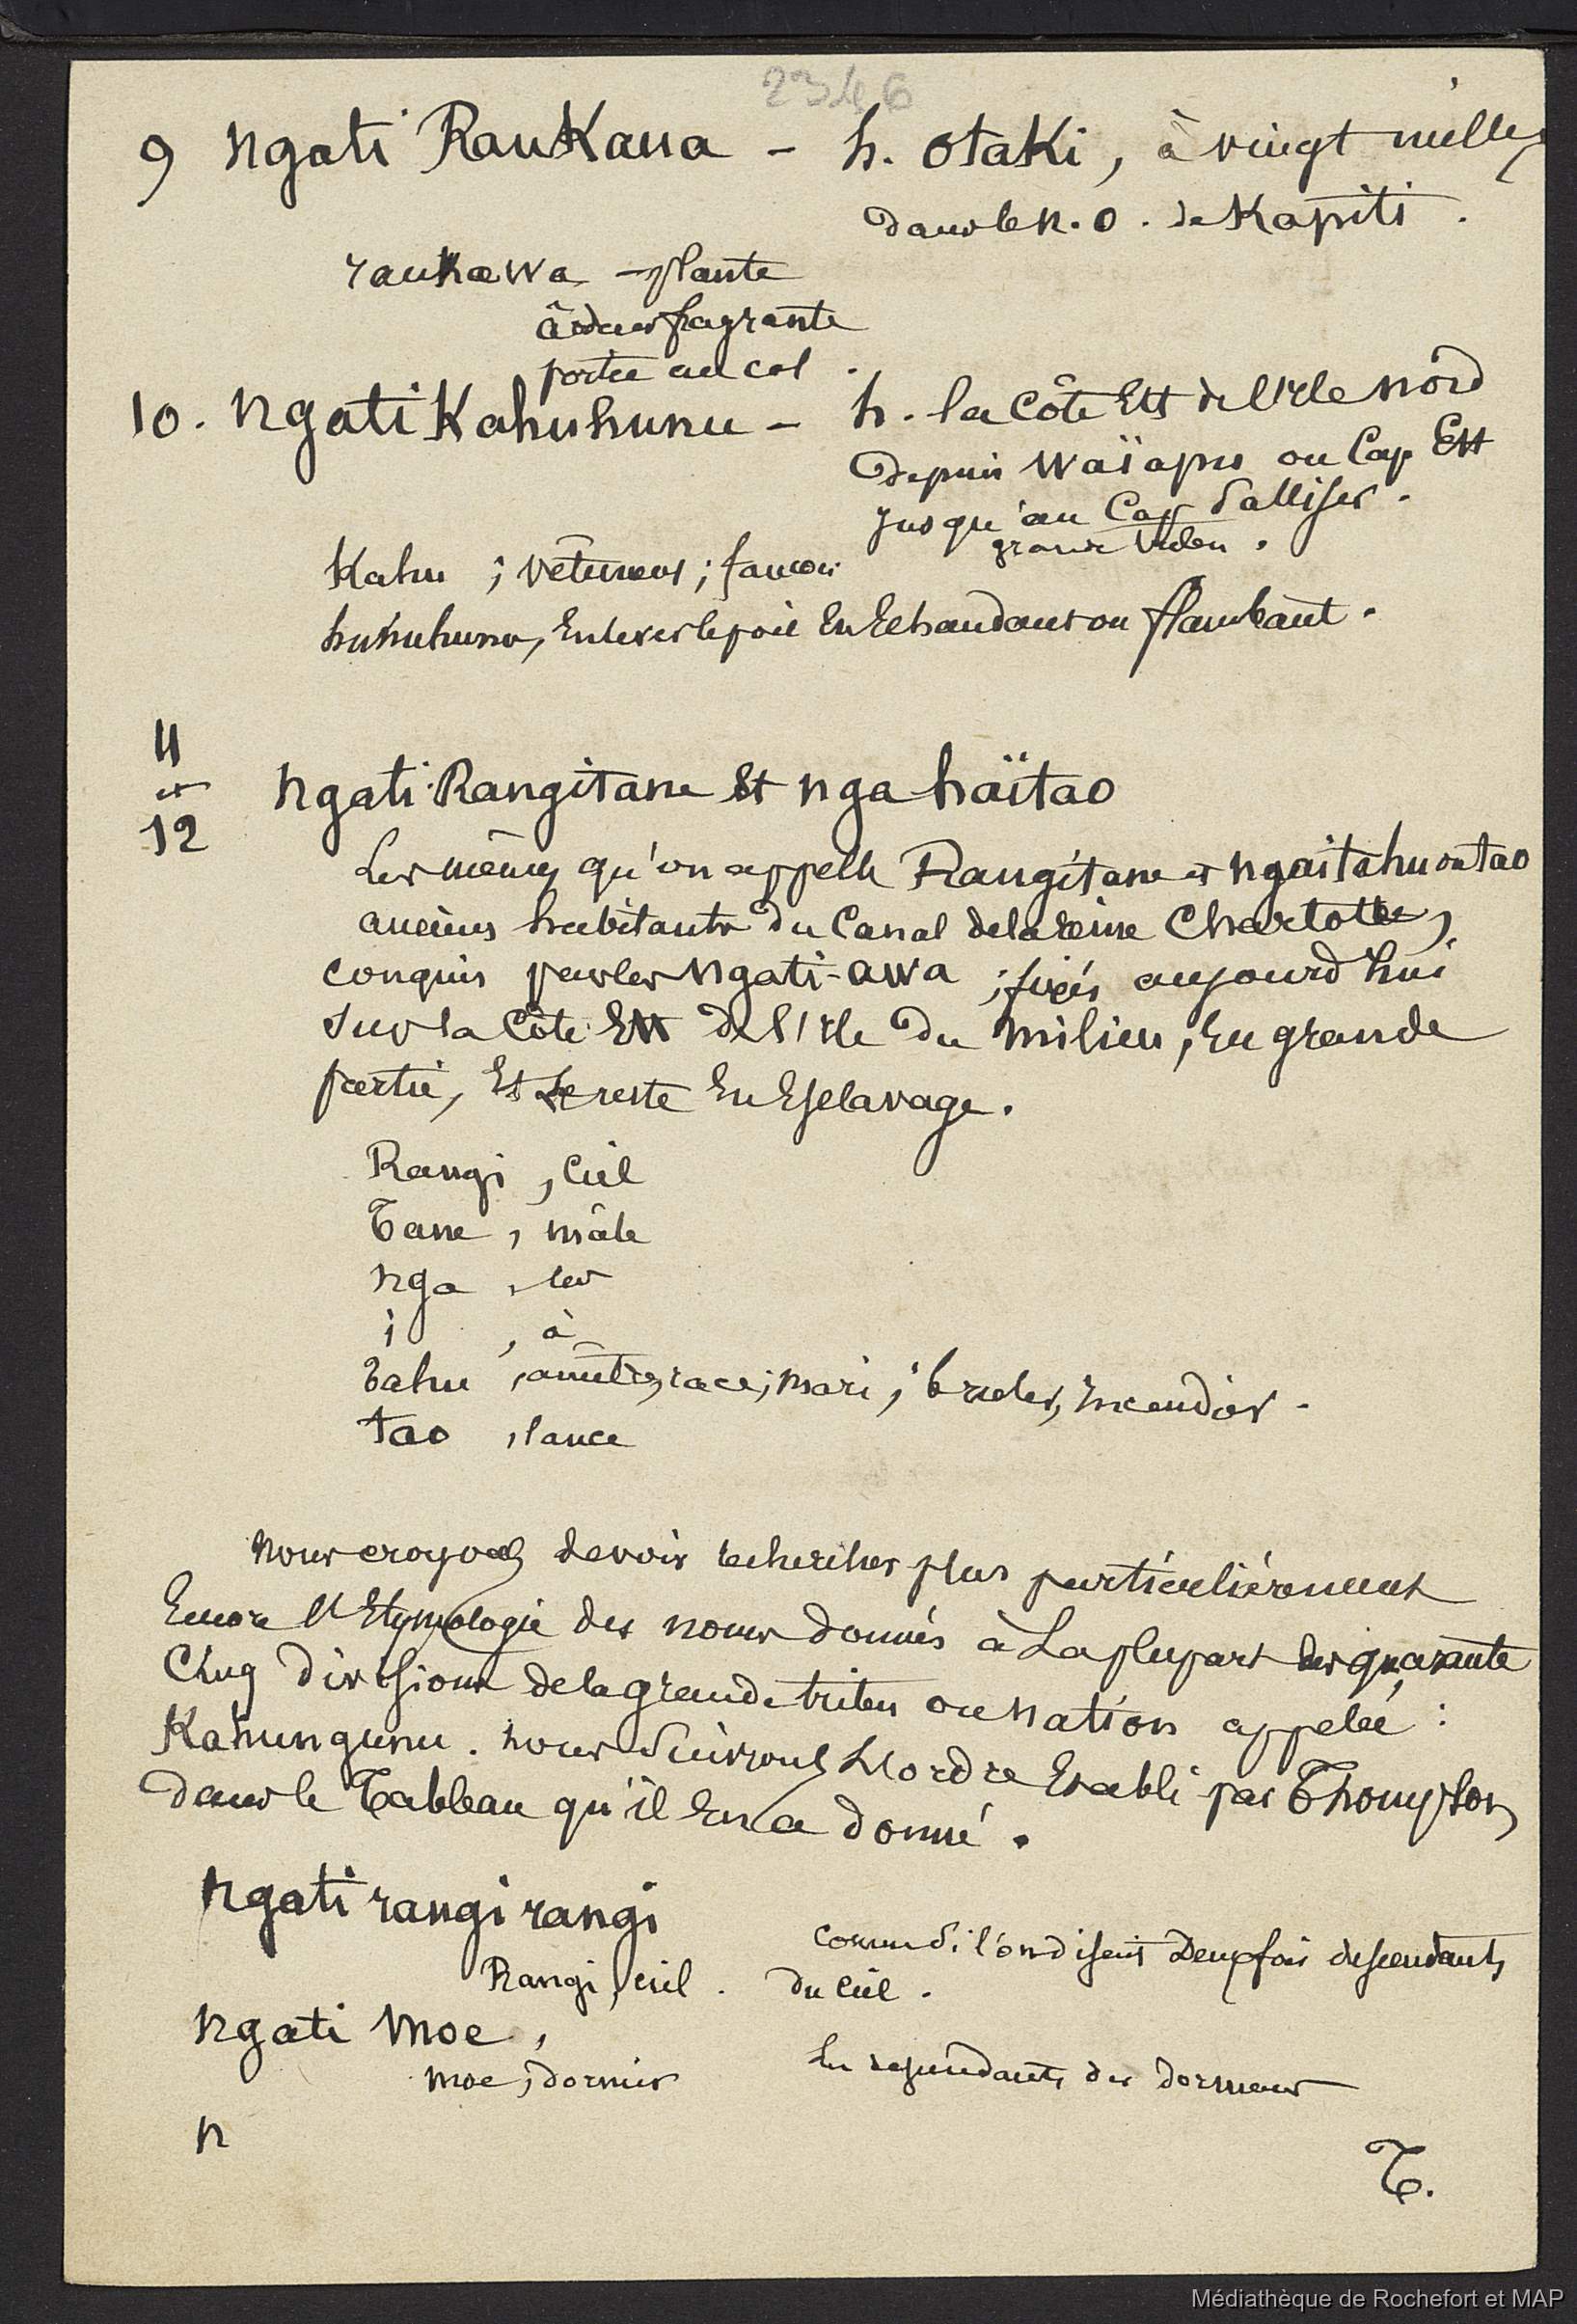 2346
9 Ngati Raukaua - h. Otaki, à vingt milles
dans le N.O. de Kapiti.
raukawa - plante
à odeur fragrante
portée au col.
10. Ngati Kahuhunu - h. la Côte Est de l'Ile Nord
depuis Waïapu ou Cap Est
jusqu'au Cap Palliser.
grande tribu.
Kahu ; vêtement ; faucon
huhuhunu, Enlever le poil En Echaudant ou flambant.
11
et
12
Ngati Rangitane Et nga haïtao
Les mêmes qu'on appelle Rangitane et Ngaitahu ou tao
anciens habitants du Canal de la reine Charlotte,
conquis par les Ngati-awa ; fixés aujourd'hui
sur la Côte Est de l'Ile du Milieu, En grande
partie, Et le reste En Esclavage.
Rangi , Ciel
Tane , mâle
nga , les
i , à
Tahu , ancêtres, race ; mari ; bruler, incendier.
tao , lance
Nous croyons devoir rechercher plus particulièrement
Encore l'Etymologie des noms donnés à La plupart des quarante
Cinq divisions de la grande tribu ou Nation appelée :
Kahungunu. Nous Suivrons L'ordre Etabli par Thompson
dans le Tableau qu'il En a donné.
Ngati rangirangi
Comme Si l'on disait Deux fois descendants
Rangi, ciel . du Ciel.
Ngati Moe,
Moe, dormir
les descendants des dormeurs
N
T.
Médiathèque de Rochefort et MAP